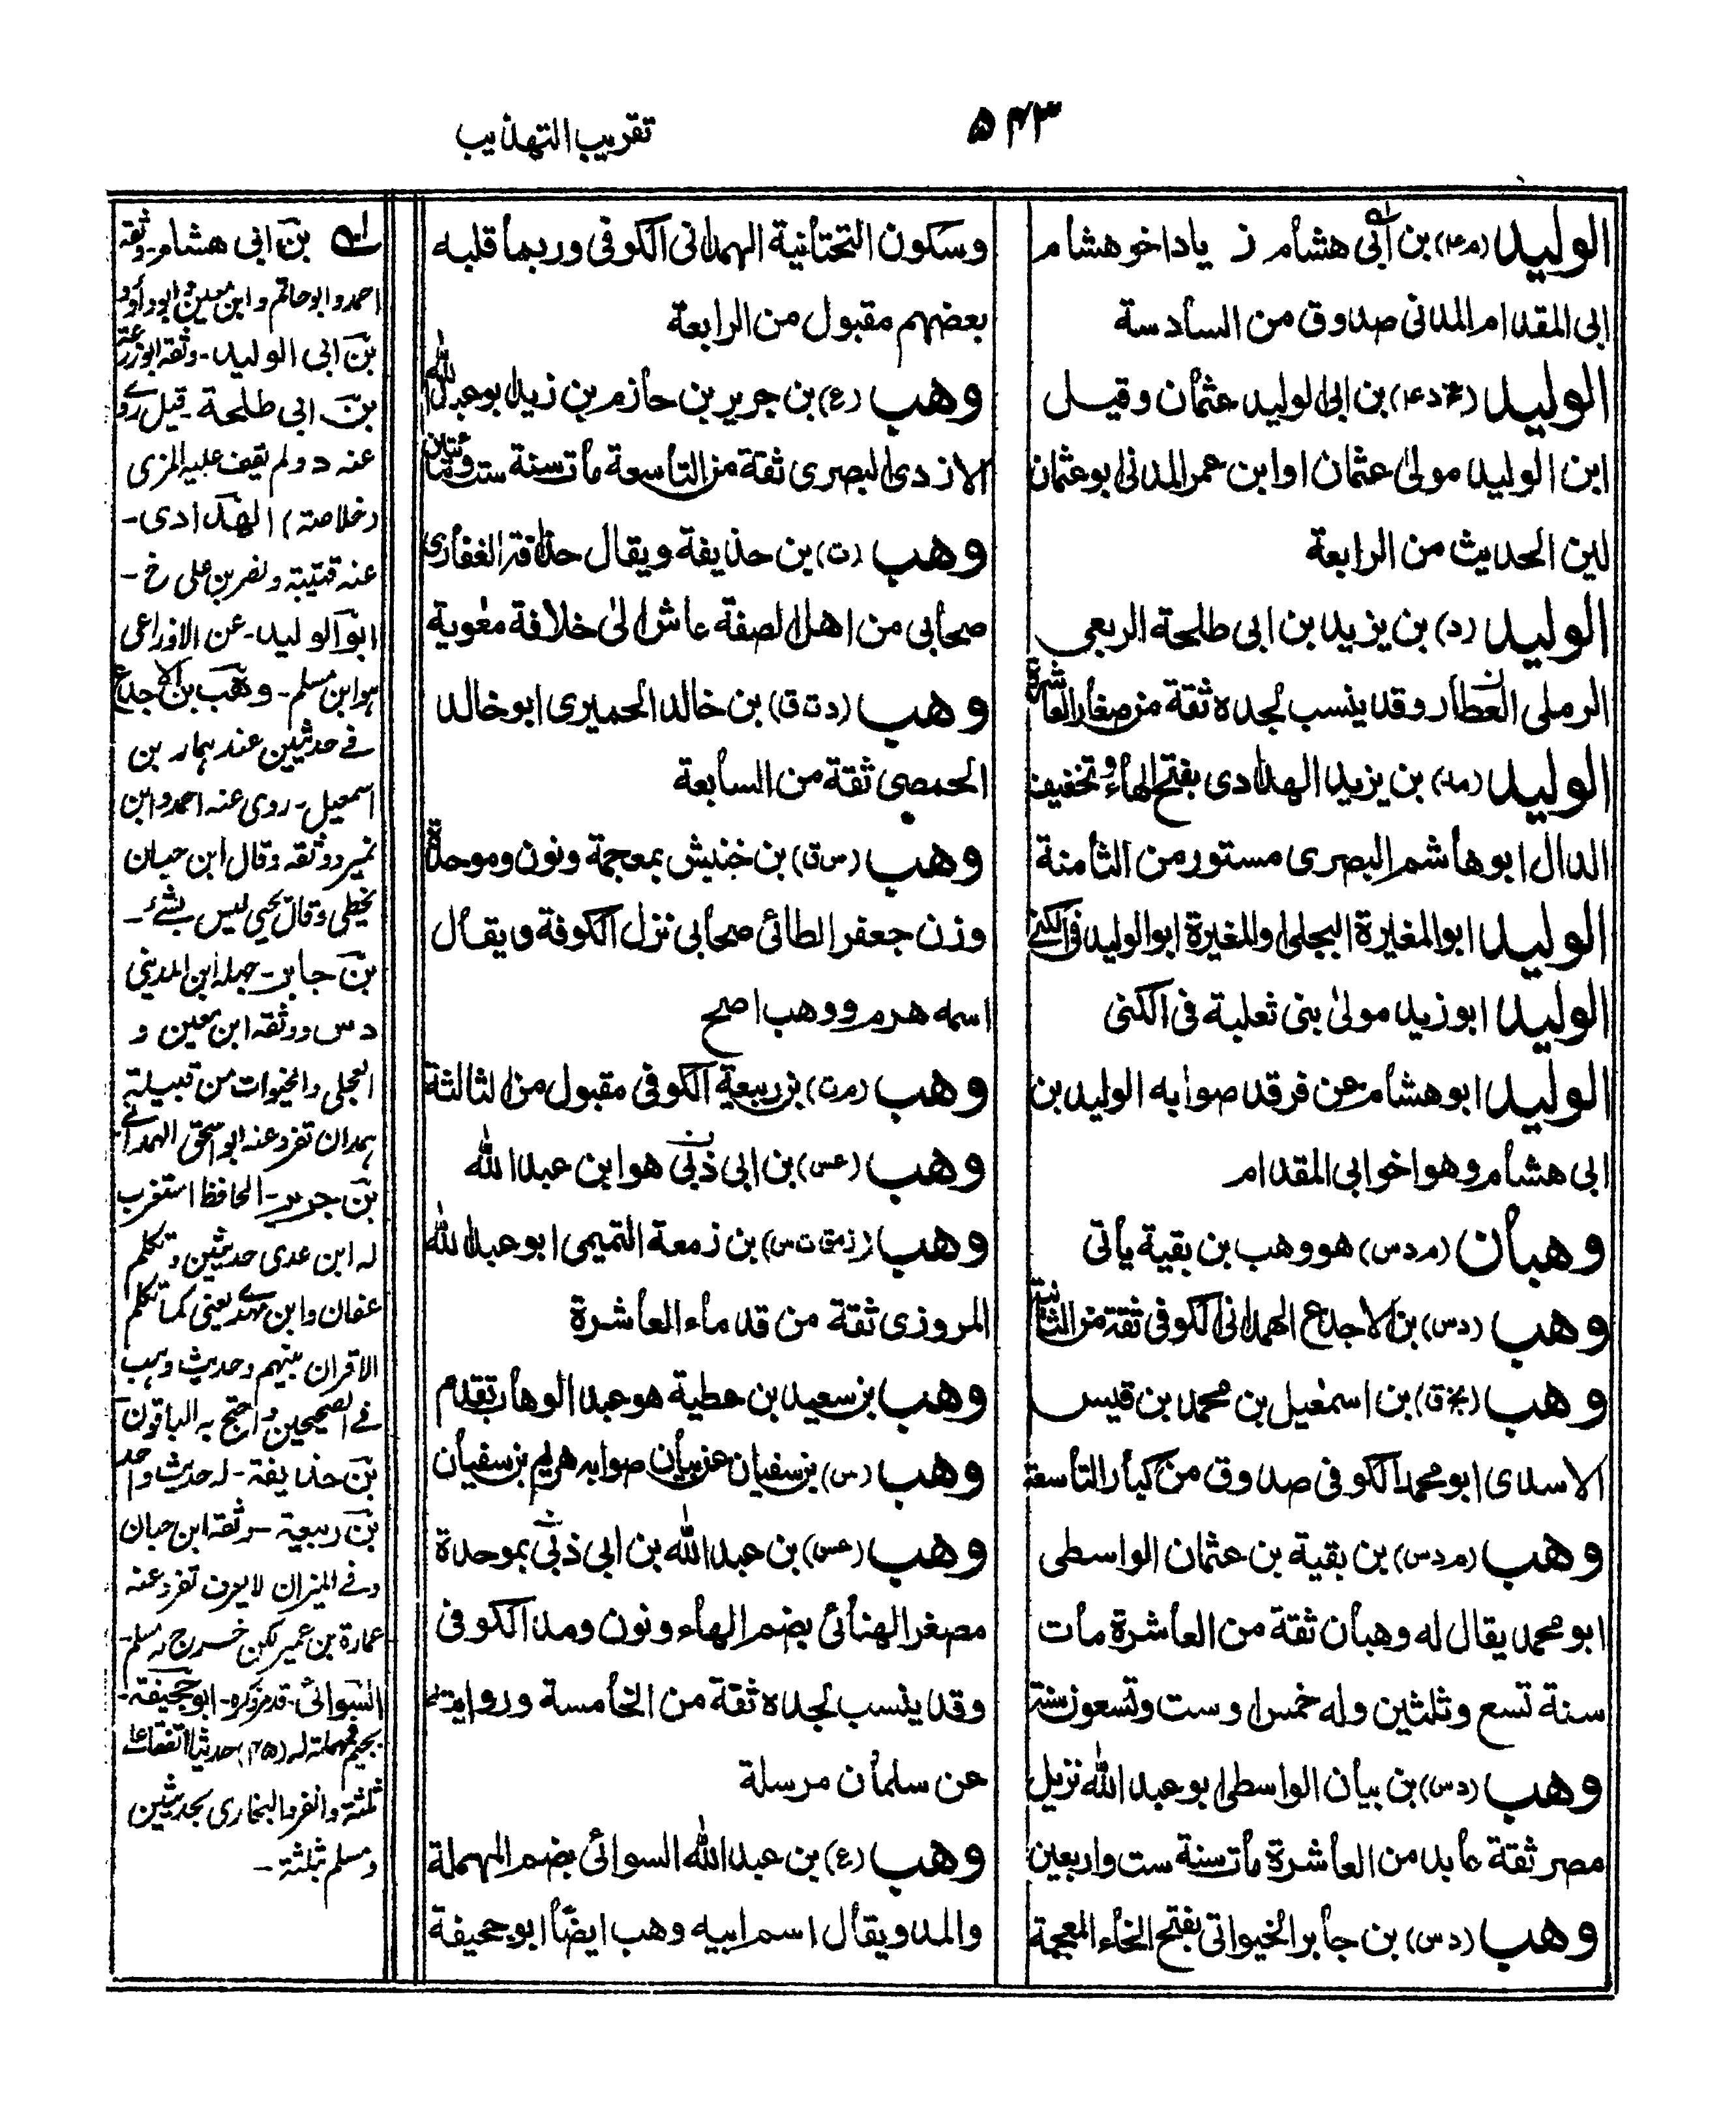 ۵۴۳
تقريب التهذيب
الوليد (م۴) بن أبى هشام زياد اخو هشام
ابى المقدام المدنى صدوق من السادسة
الوليد بن ابى الوليد عثمان وقيل
ابن الوليد مولى عثمان او ابن عمر المدنى ابو عثمان
لين الحديث من الرابعة
الوليد (د) بن يزيد بن ابى طلحة الربعى
الرملى العطار وقد ينسب لجده ثقة من صغار العاشرة
الوليد (مد) بن يزيد الهدادى بفتح الهاء وتخفيف
الدال ابو هاشم البصرى مستور من الثامنة
الوليد ابو المغيرة البجلى او المغيرة ابو الوليد فى الكنى
الوليد ابو زيد مولى بنى ثعلبة فى الكنى
الوليد ابو هشام عن فرقد صوابه الوليد بن
ابى هشام وهو اخو ابى المقدام
وهبان (م د س) هو وهب بن بقية يأتى
وهب (د س) بن الاجدع الهمدانى الكوفى ثقة من الثانية
وهب (بخ ق) بن اسمٰعيل بن محمد بن قيس
الاسدى ابو محمد الكوفى صدوق من كبار التاسعة
وهب (م د س) بن بقية بن عثمان الواسطى
ابو محمد يقال له وهبان ثقة من العاشرة مات
سنة تسع وثلثين وله خمس او ست وتسعون سنة
وهب (د س) بن بيان الواسطى ابو عبد الله نزيل
مصر ثقة عابد من العاشرة مات سنة ست واربعين
وهب (د س) بن جابر الخيوانى بفتح الخاء المعجمة
وسكون التحتانية الهمدانى الكوفى وربما قلبه
بعضهم مقبول من الرابعة
وهب (ع) بن جرير بن حازم بن زيد ابو عبد الله
الازدى البصرى ثقة من التاسعة مات سنة ست ومئتين
وهب (ت) بن حذيفة ويقال حذافة الغفارى
صحابى من اهل الصفة عاش الى خلافة معٰوية
وهب (د ت ق) بن خالد الحميرى ابو خالد
الحمصى ثقة من السابعة
وهب (س ق) بن خنبش بمعجمة ونون وموحدة
وزن جعفر الطائى صحابى نزل الكوفة ويقال
اسمه هرم ووهب اصح
وهب (م ت) بن ربيعة الكوفى مقبول من الثالثة
وهب (عس) بن ابى ذبى هو ابن عبد الله
وهب بن زمعة التميمى ابو عبد الله
المروزى ثقة من قدماء العاشرة
وهب بن سعيد بن عطية هو عبد الوهاب تقدم
وهب (س) بن سفيان عن بيان صوابه هريم بن سفيان
وهب (عس) بن عبد الله بن ابى ذبى بموحدة
مصغر الهنائى بضم الهاء ونون ومد الكوفى
وقد ينسب لجده ثقة من الخامسة وروايته
عن سلمان مرسلة
وهب (ع) بن عبد الله السوائى بضم المهملة
والمد ويقال اسم ابيه وهب ايضًا ابو جحيفة
بن ابى هشام - وثقه
احمد وابو حاتم وابن معين وابو داود
بن ابى الوليد - وثقه ابو زرعة
بن ابى طلحة - قيل روے
عنه د ولم يقف عليه المزى
(خلاصة) الهدادى -
عنه قتيبة ونصر بن على خ -
ابو الوليد - عن الاوزاعى
هو ابن مسلم - وهب بن الاجدع
فے حديثين عند
اسمعيل - روى عنه احمد وابن
نمير ووثقه وقال ابن حبان
يخطى وقال يحيى ليس بشئ -
بن جابر - جهله ابن المدينى
د س ووثقه ابن معين و
العجلى والخيوان من قبيلة
همدان تفرد عنه ابو اسحق الهمدانے
بن جرير - الحافظ استغرب
له ابن عدى حديثين وتكلم
عفان وابن مهدے يعنى كما تكلم
الاقران بينهم وحديث وهب
فے الصحيحين واحتج به الباقون
بن حذيفة - له حديث واحد
بن ربيعة - وثقه ابن حبان
وفے الميزان لا يعرف تفرد عنه
عمارة بن عمير لكن خرج له مسلم -
السوائى - قد مر ذكره - ابو جحيفة -
بجيم فمهملة له (۴۵) حديثا اتفقا على
ثلثة وانفرد البخارى بحديثين
ومسلم بثلثة -